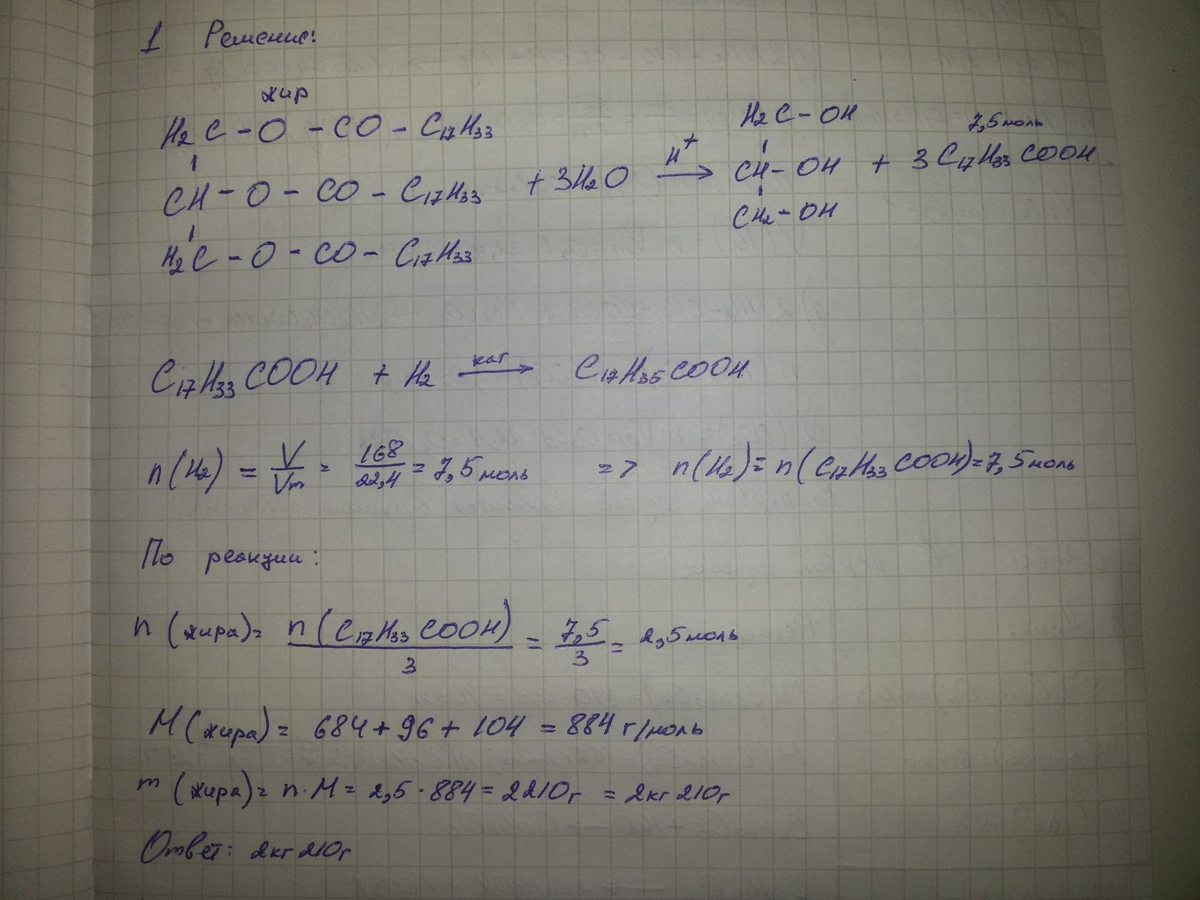 1 Решение:
жир
H₂C – O – CO – C₁₇H₃₃
CH – O – CO – C₁₇H₃₃ + 3H₂O H⁺→
H₂C – O – CO – C₁₇H₃₃
H₂C – OH
CH – OH + 3 C₁₇H₃₃COOH
7,5 моль
CH₂ – OH
C₁₇H₃₃COOH + H₂ кат→ C₁₇H₃₅COOH
n(H₂) = V/Vm = 168/22,4 = 7,5 моль => n(H₂) = n(C₁₇H₃₃COOH) = 7,5 моль
По реакции:
n (жира) = n(C₁₇H₃₃COOH)/3 = 7,5/3 = 2,5 моль
M (жира) = 684 + 96 + 104 = 884 г/моль
m (жира) = n · M = 2,5 · 884 = 2210г = 2кг 210г
Ответ: 2кг 210г